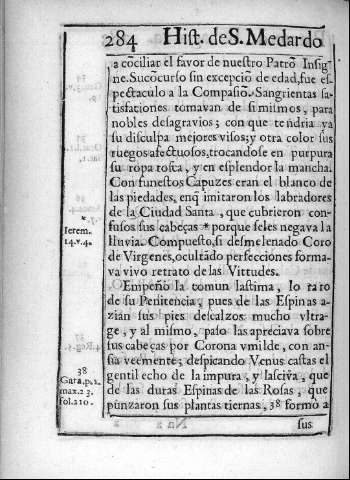 284 Hist. de S. Medardo
a cõciliar el favor de nuestro Patrõ Insig
ne. Sucõcurso sin excepciõ de edad, fue es-
pectaculo a la Compasiõ. Sangrientas sa-
tisfationes tomavan de si mismos, para
nobles desagravios; con que tendria ya
su disculpa mejores visos; y otra color sus
ruegos afectuosos, trocandose en purpura
su ropa rosca, y en esplendor la mancha.
Con funestos Capuzes eran el blanco de
las piedades, enq̃ imitaron los labradores
de la Ciudad Santa, que cubrieron con-
fusos sus cabeças * porque seles negava la
lluvia. Compuesto, si desmelenado Coro
de Virgenes, ocultãdo perfecciones forma-
va vivo retrato de las Virtudes.
Empeñò la comun lastima, lo raro
de su Penitencia, pues de las Espinas a-
zian sus pies descalzos mucho vltra-
ge, y al mismo, paso las apreciava sobre
sus cabeças por Corona vmilde, con an-
sia veemente; despicando Venus castas el
gentil echo de la impura, y lasciva, que
de las duras Espinas de las Rosas, que
punzaron sus plantas tiernas, 38 formò a
sus
*
Ierem.
14. v. 4.
38
Gara. p. 2.
max. 23.
fol. 210.